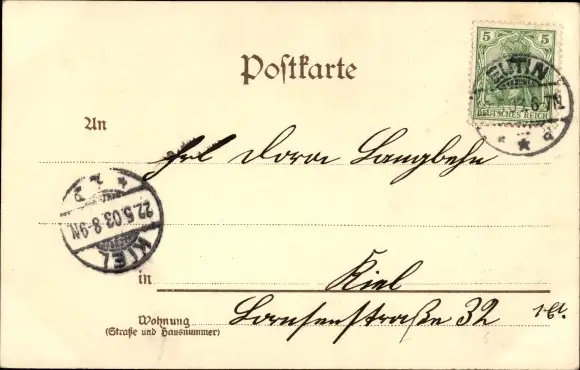 Postkarte
5 5
DEUTSCHES REICH
EUTIN
6-7N.
An
Frl Dora Langbehn
22.5.03.8-9N
KIEL
in
Kiel
Wohnung
(Straße und Hausnummer)
Lornsenstraße 32